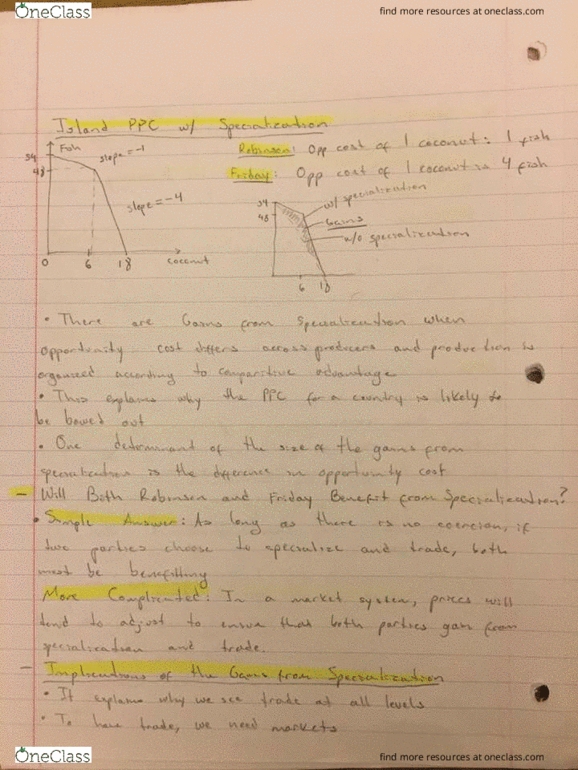 OneClass
find more resources at oneclass.com
Island PPC w/ Specialization
Fish
54
48
slope = -1
slope = -4
0 6 18 coconut
Robinson: Opp cost of 1 coconut: 1 fish
Friday: Opp cost of 1 coconut is 4 fish
54
48
w/ specialization
Gains
w/o specialization
6 18
• There are Gains from Specialization when
opportunity cost differs across producers and production is
organized according to comparative advantage
• This explains why the PPC for a country is likely to
be bowed out
• One determinant of the size of the gains from
specialization is the difference in opportunity cost
- Will Both Robinson and Friday Benefit from Specialization?
• Simple Answer: As long as there is no coercion, if
two parties choose to specialize and trade, both
must be benefitting
More Complicated: In a market system, prices will
tend to adjust to ensure that both parties gain from
specialization and trade.
- Implications of the Gains from Specialization
• It explains why we see trade at all levels
• To have trade, we need markets
OneClass
find more resources at oneclass.com